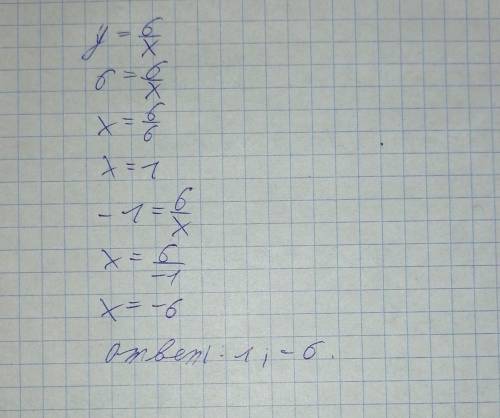 y = 6/x
6 = 6/x
x = 6/6
x = 1
-1 = 6/x
x = 6/-1
x = -6
ответ: 1; -6.